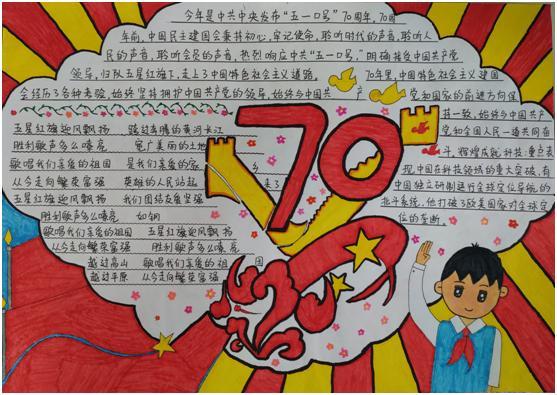 今年是中共中央发布“五一口号”70周年，70周
年前，中国民主建国会秉持初心，牢记使命，聆听时代的声音，聆听人
民的声音，聆听会员的声音，热烈响应中共“五一口号”，明确接受中国共产党
领导，归队五星红旗下，走上了中国特色社会主义道路。 70年里，中国特色社会主义建国
会经历了各种考验，始终坚持拥护中国共产党的领导，始终与中国共 产 党和国家的前进方向保
持一致，始终与中国共产
党和全国人民一道共同奋
斗，辉煌成就 科技：重点表
现，中国在科技领域的重大突破，有
中国独立研制运行全球定位导航的
北斗系统，他打破了欧美国家对全球定
位的垄断。
五星红旗迎风飘扬 越过奔腾的黄河长江
胜利歌声多么嘹亮 宽广美丽的土地
歌唱我们亲爱的祖国 是我们亲爱的家 乡
从今走向繁荣富强 英雄的人民站起 来了
五星红旗迎风飘扬 我们团结友爱坚强
胜利歌声多么嘹亮 如钢
歌唱我们亲爱的祖国 五星红旗迎风飘扬
从今走向繁荣富强 胜利歌声多么嘹亮
越过高山 歌唱我们亲爱的祖 国
越过平原 从今走向繁荣富强
70